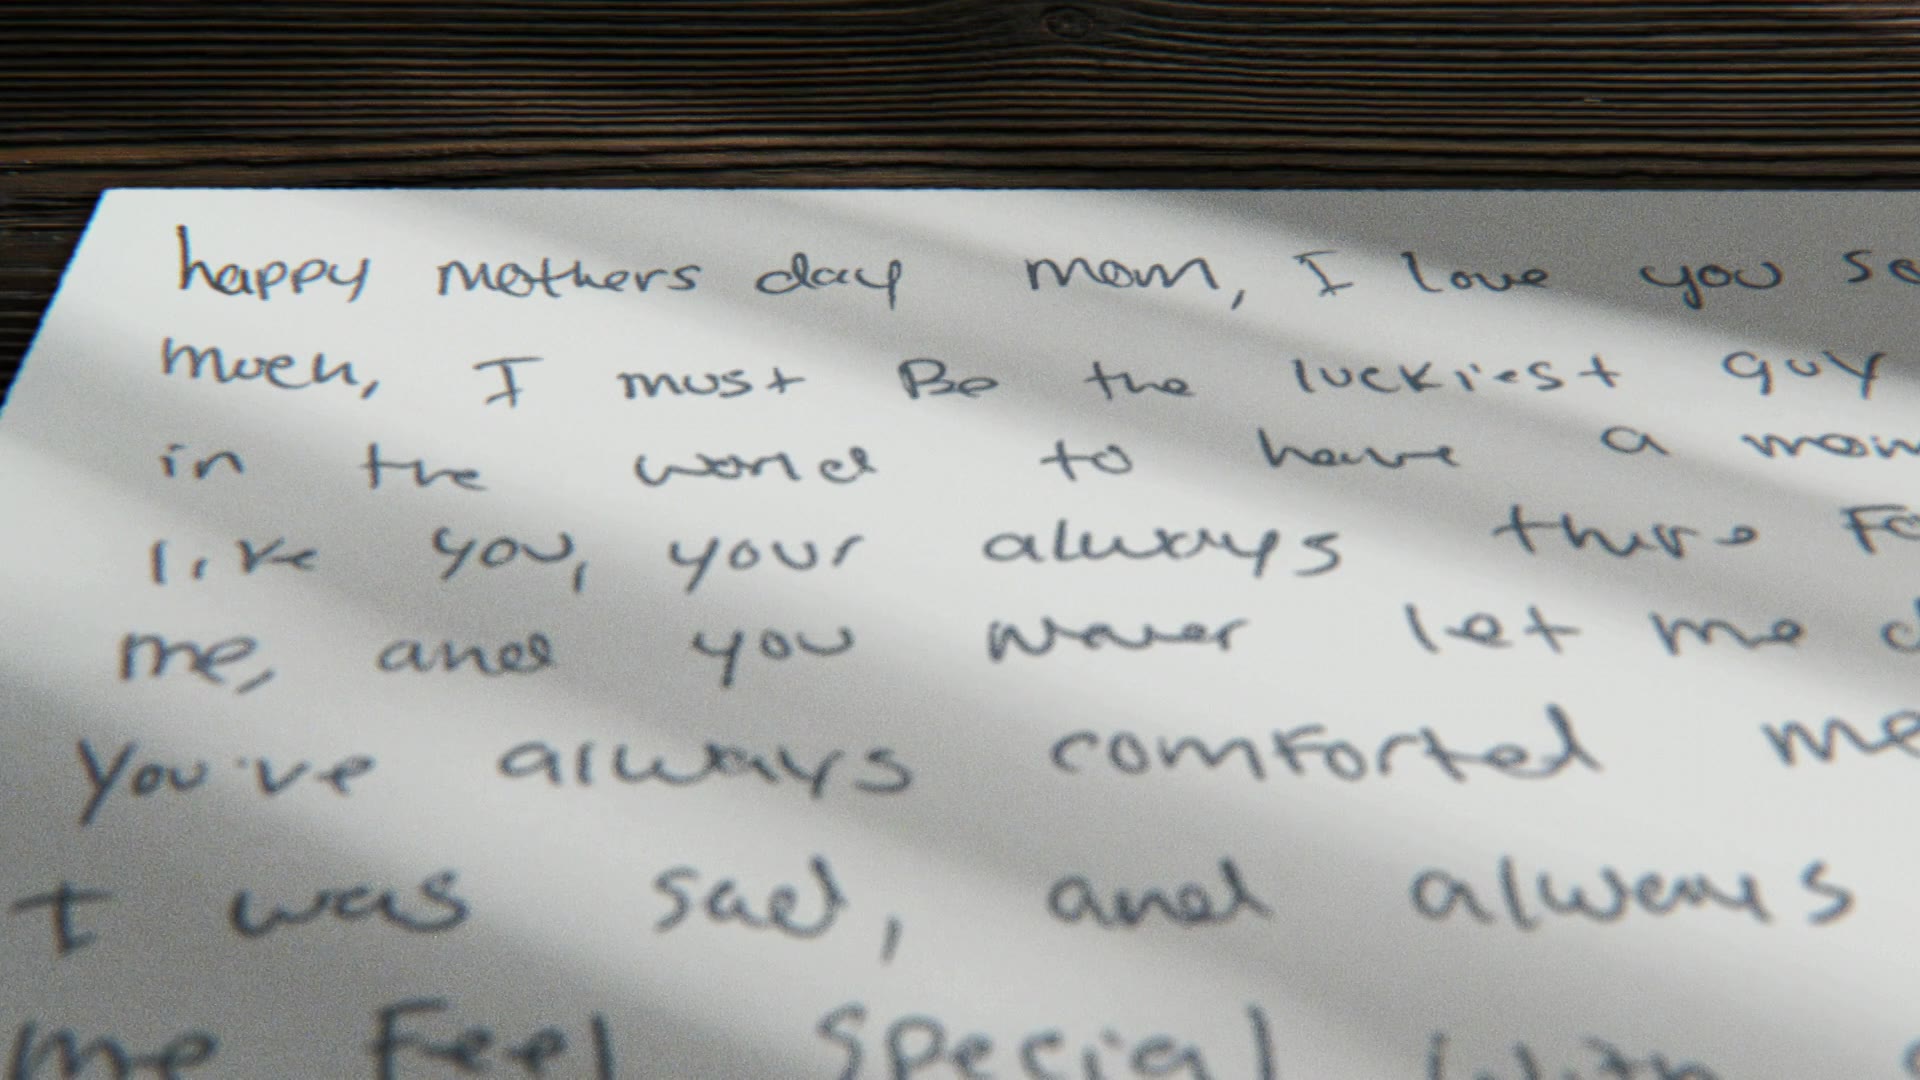 happy mothers day mom, I love you so
much, I must Be the luckiest guy
in the world to have a mom
like you, your always there Fo
me, and you never let me d
You've always comforted me
I was sad, and always
me Feel Special with